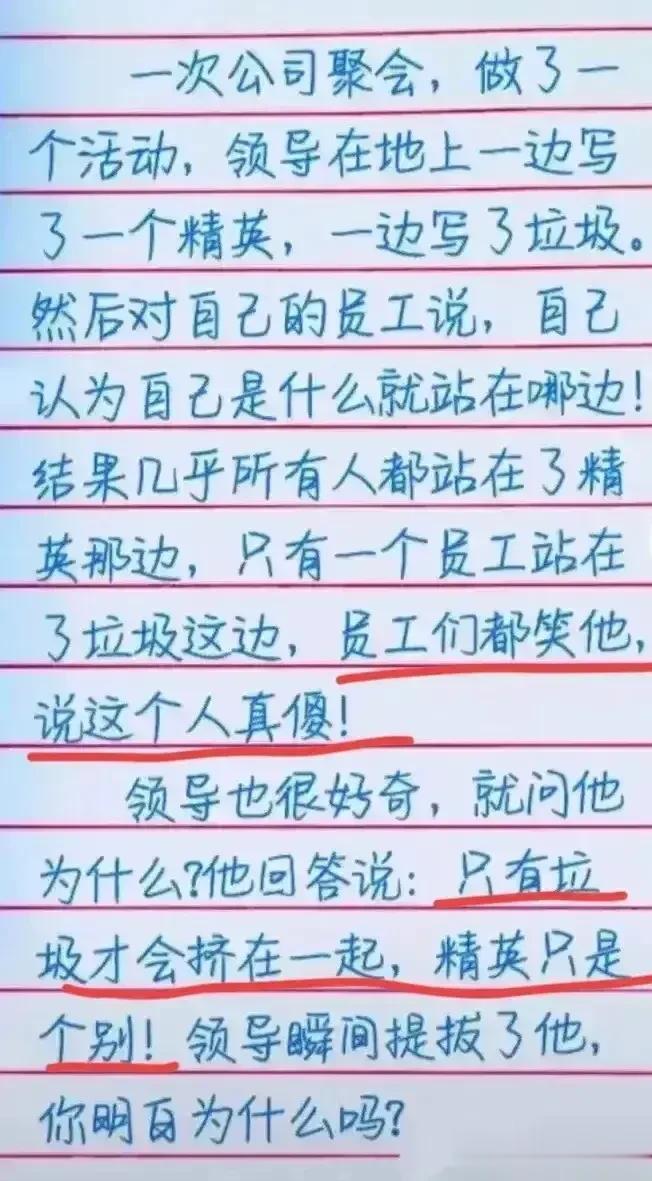 一次公司聚会，做了一
个活动，领导在地上一边写
了一个精英，一边写了垃圾。
然后对自己的员工说，自己
认为自己是什么就站在哪边！
结果几乎所有人都站在了精
英那边，只有一个员工站在
了垃圾这边，员工们都笑他，
说这个人真傻！
领导也很好奇，就问他
为什么？他回答说：只有垃
圾才会挤在一起，精英只是
个别！领导瞬间提拔了他，
你明白为什么吗？